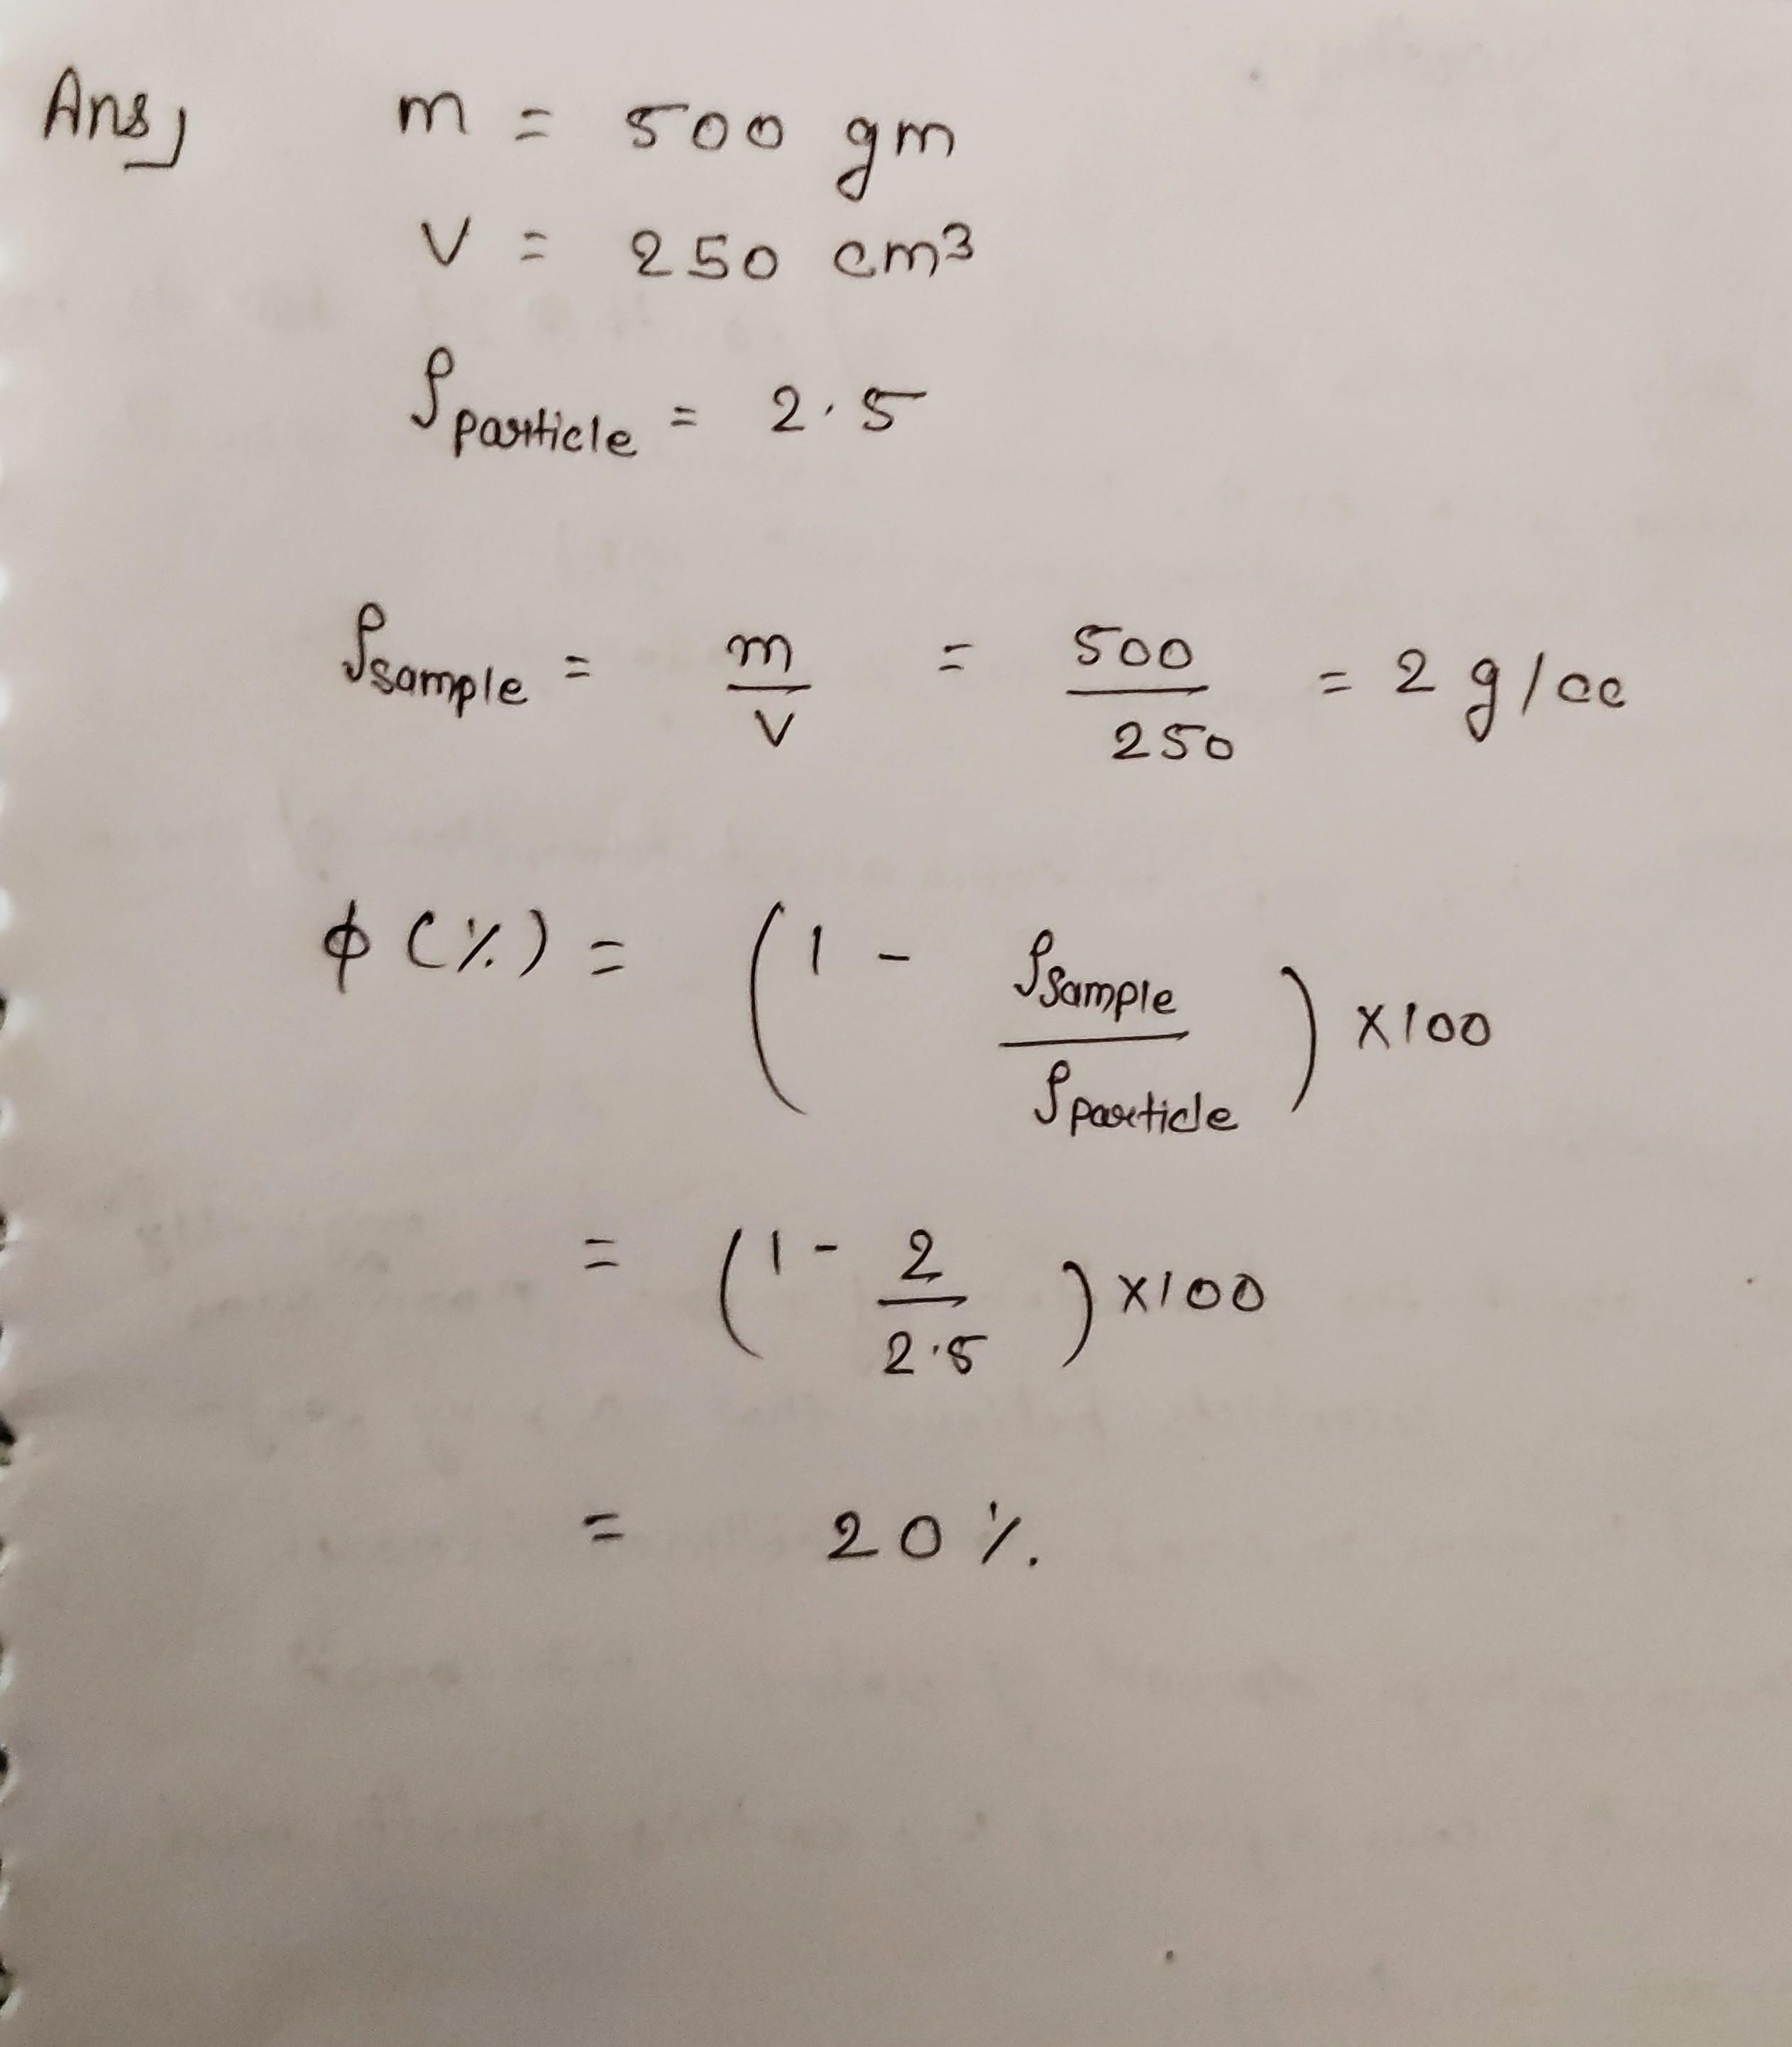 Ans, m = 500 gm
V = 250 cm³
ρparticle = 2.5
ρsample = m/V = 500/250 = 2 g/cc
φ(%) = (1 - ρsample/ρparticle) ×100
= (1 - 2/2.5) ×100
= 20%.